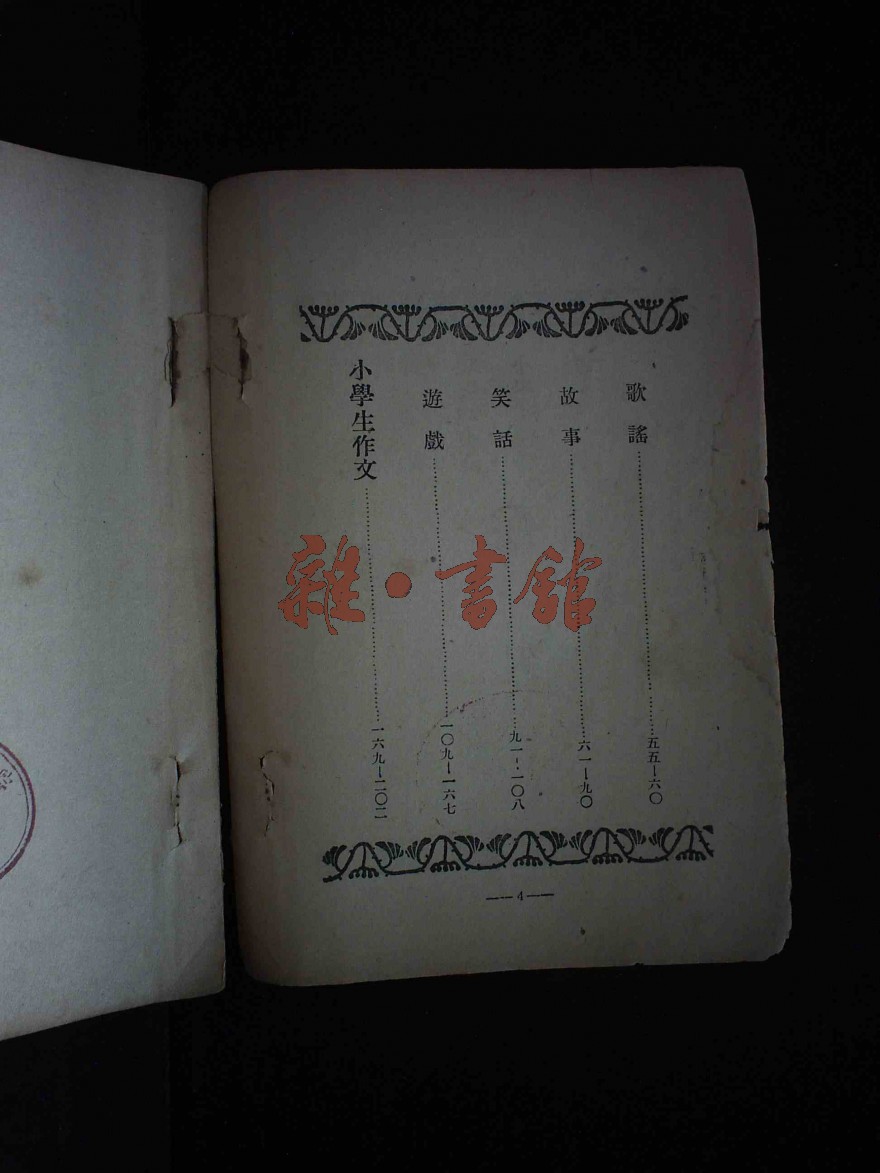 歌謠……五五—六〇
故事……六一—九〇
笑話……九一—一〇八
遊戲……一〇九—一六七
小學生作文……一六九—二〇二
—4—
雜·書館